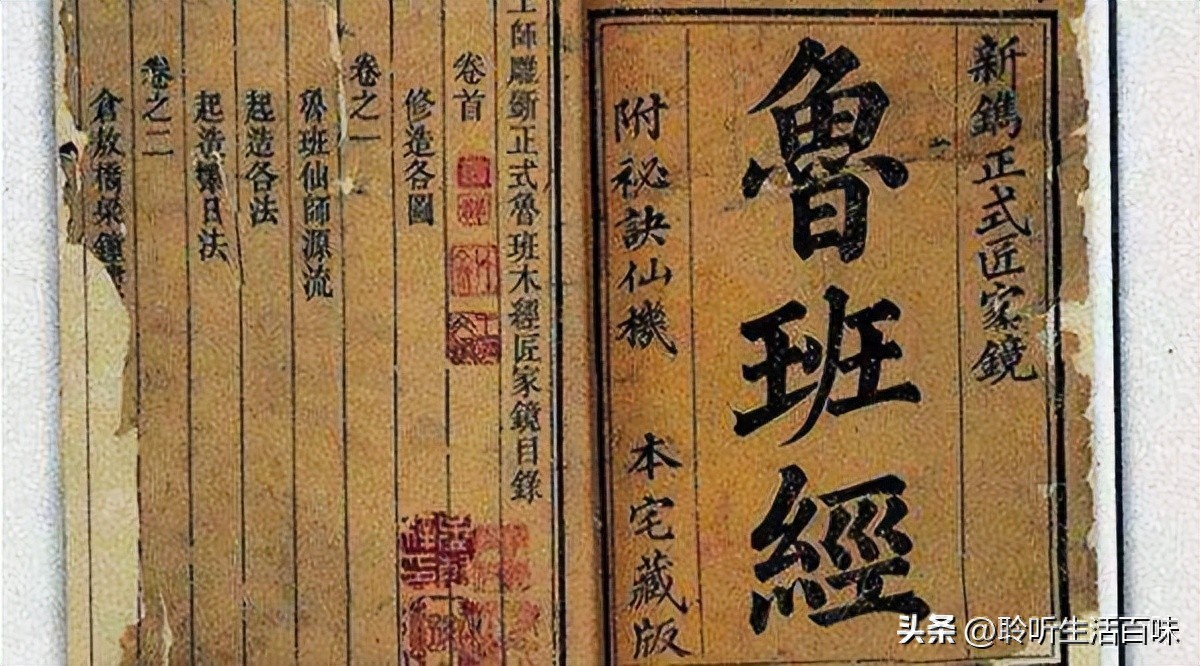 新鐫正式匠家鏡
魯班經
附祕訣仙機 本宅藏版
工師雕斲正式魯班木經匠家鏡目錄
卷首
修造各圖
卷之一
魯班仙師源流
起造各法
起造擇日法
卷之二
倉敖橋梁鐘
头条 @聆听生活百味